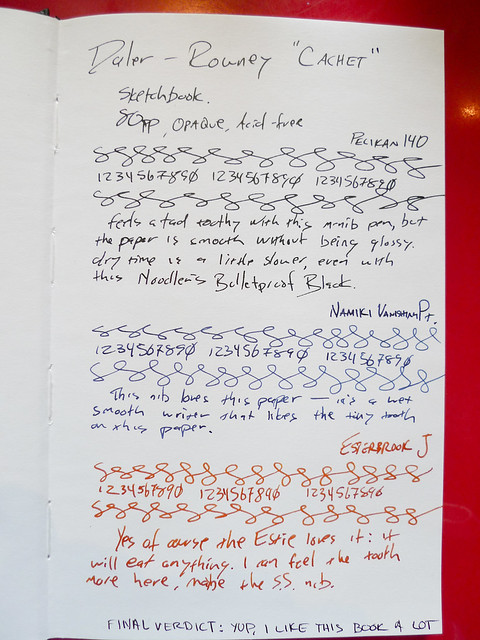 Daler-Rowney "CACHET"
Sketchbook.
80pp, OPAQUE, Acid-free
PELIKAN 140
1234567890 1234567890 1234567890
feels a tad toothy with this m-nib pen, but
the paper is smooth without being glossy.
dry time is a little slower, even with
this Noodler's Bulletproof Black.
NAMIKI VANISHING Pt.
1234567890 1234567890 1234567890
This nib loves this paper — it's a wet
smooth writer that likes the tiny tooth
on this paper.
ESTERBROOK J
1234567890 1234567890 1234567890
Yes of course the Estie loves it: it
will eat anything. I can feel the tooth
more here, maybe the S.S. nib.
FINAL VERDICT: YUP, I LIKE THIS BOOK A LOT